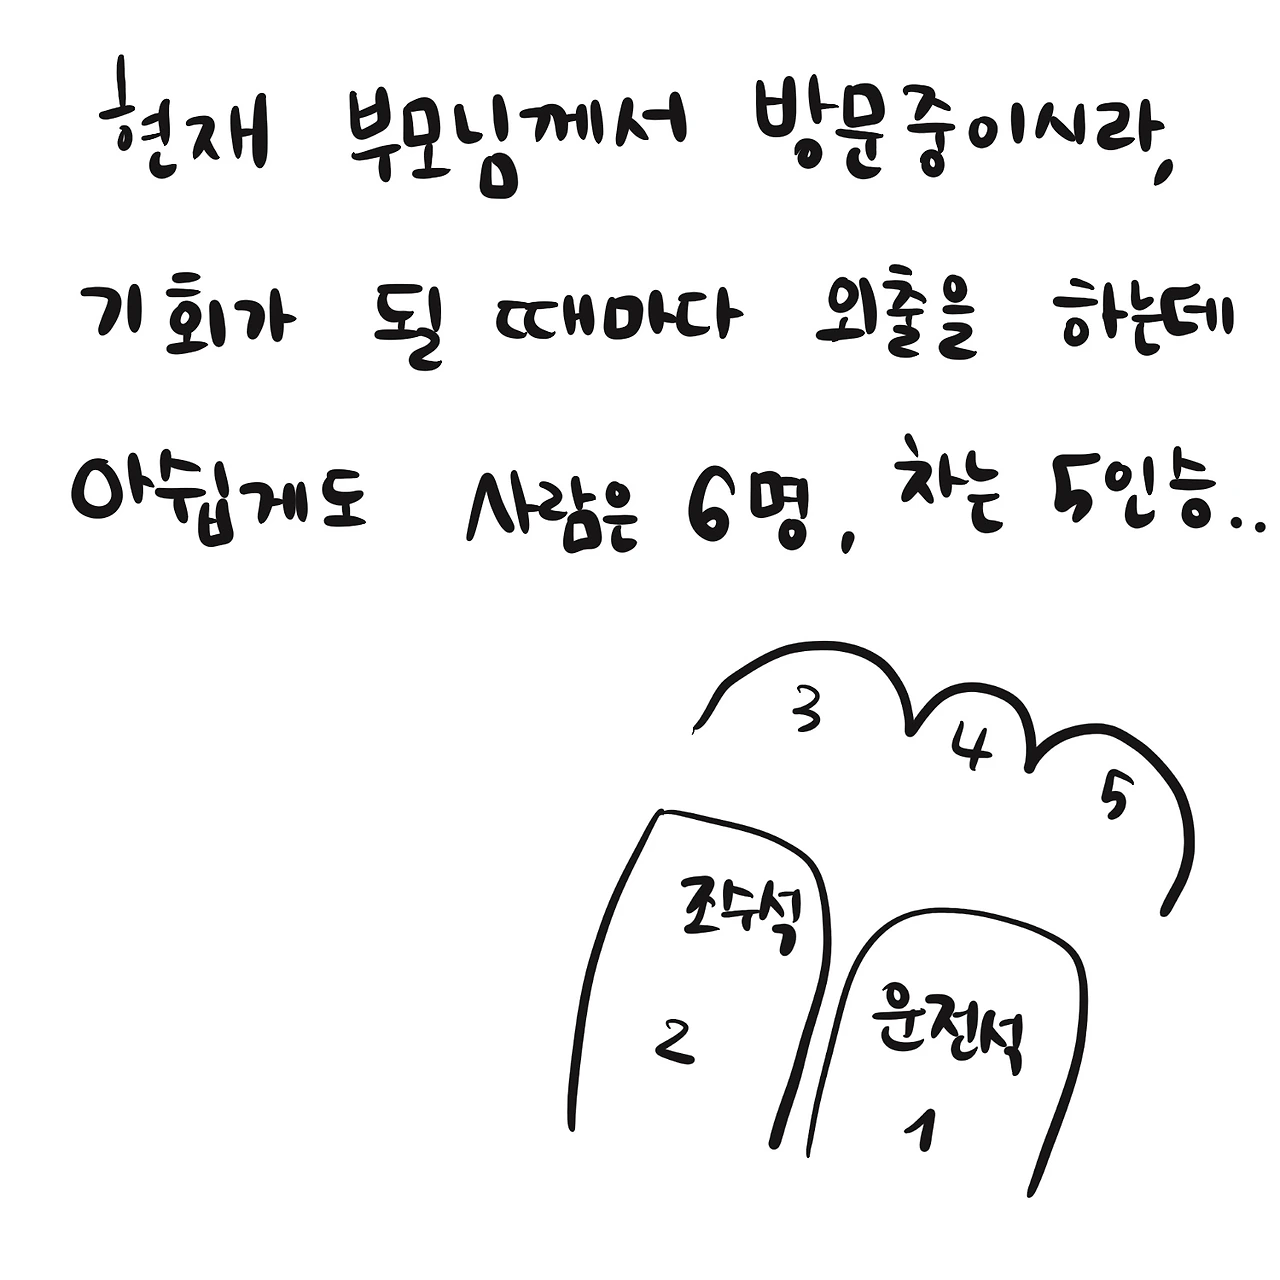 현재 부모님께서 방문중이시라,
기회가 될 때마다 외출을 하는데
아쉽게도 사람은 6명, 차는 5인승..
3
4
5
조수석
2
운전석
1